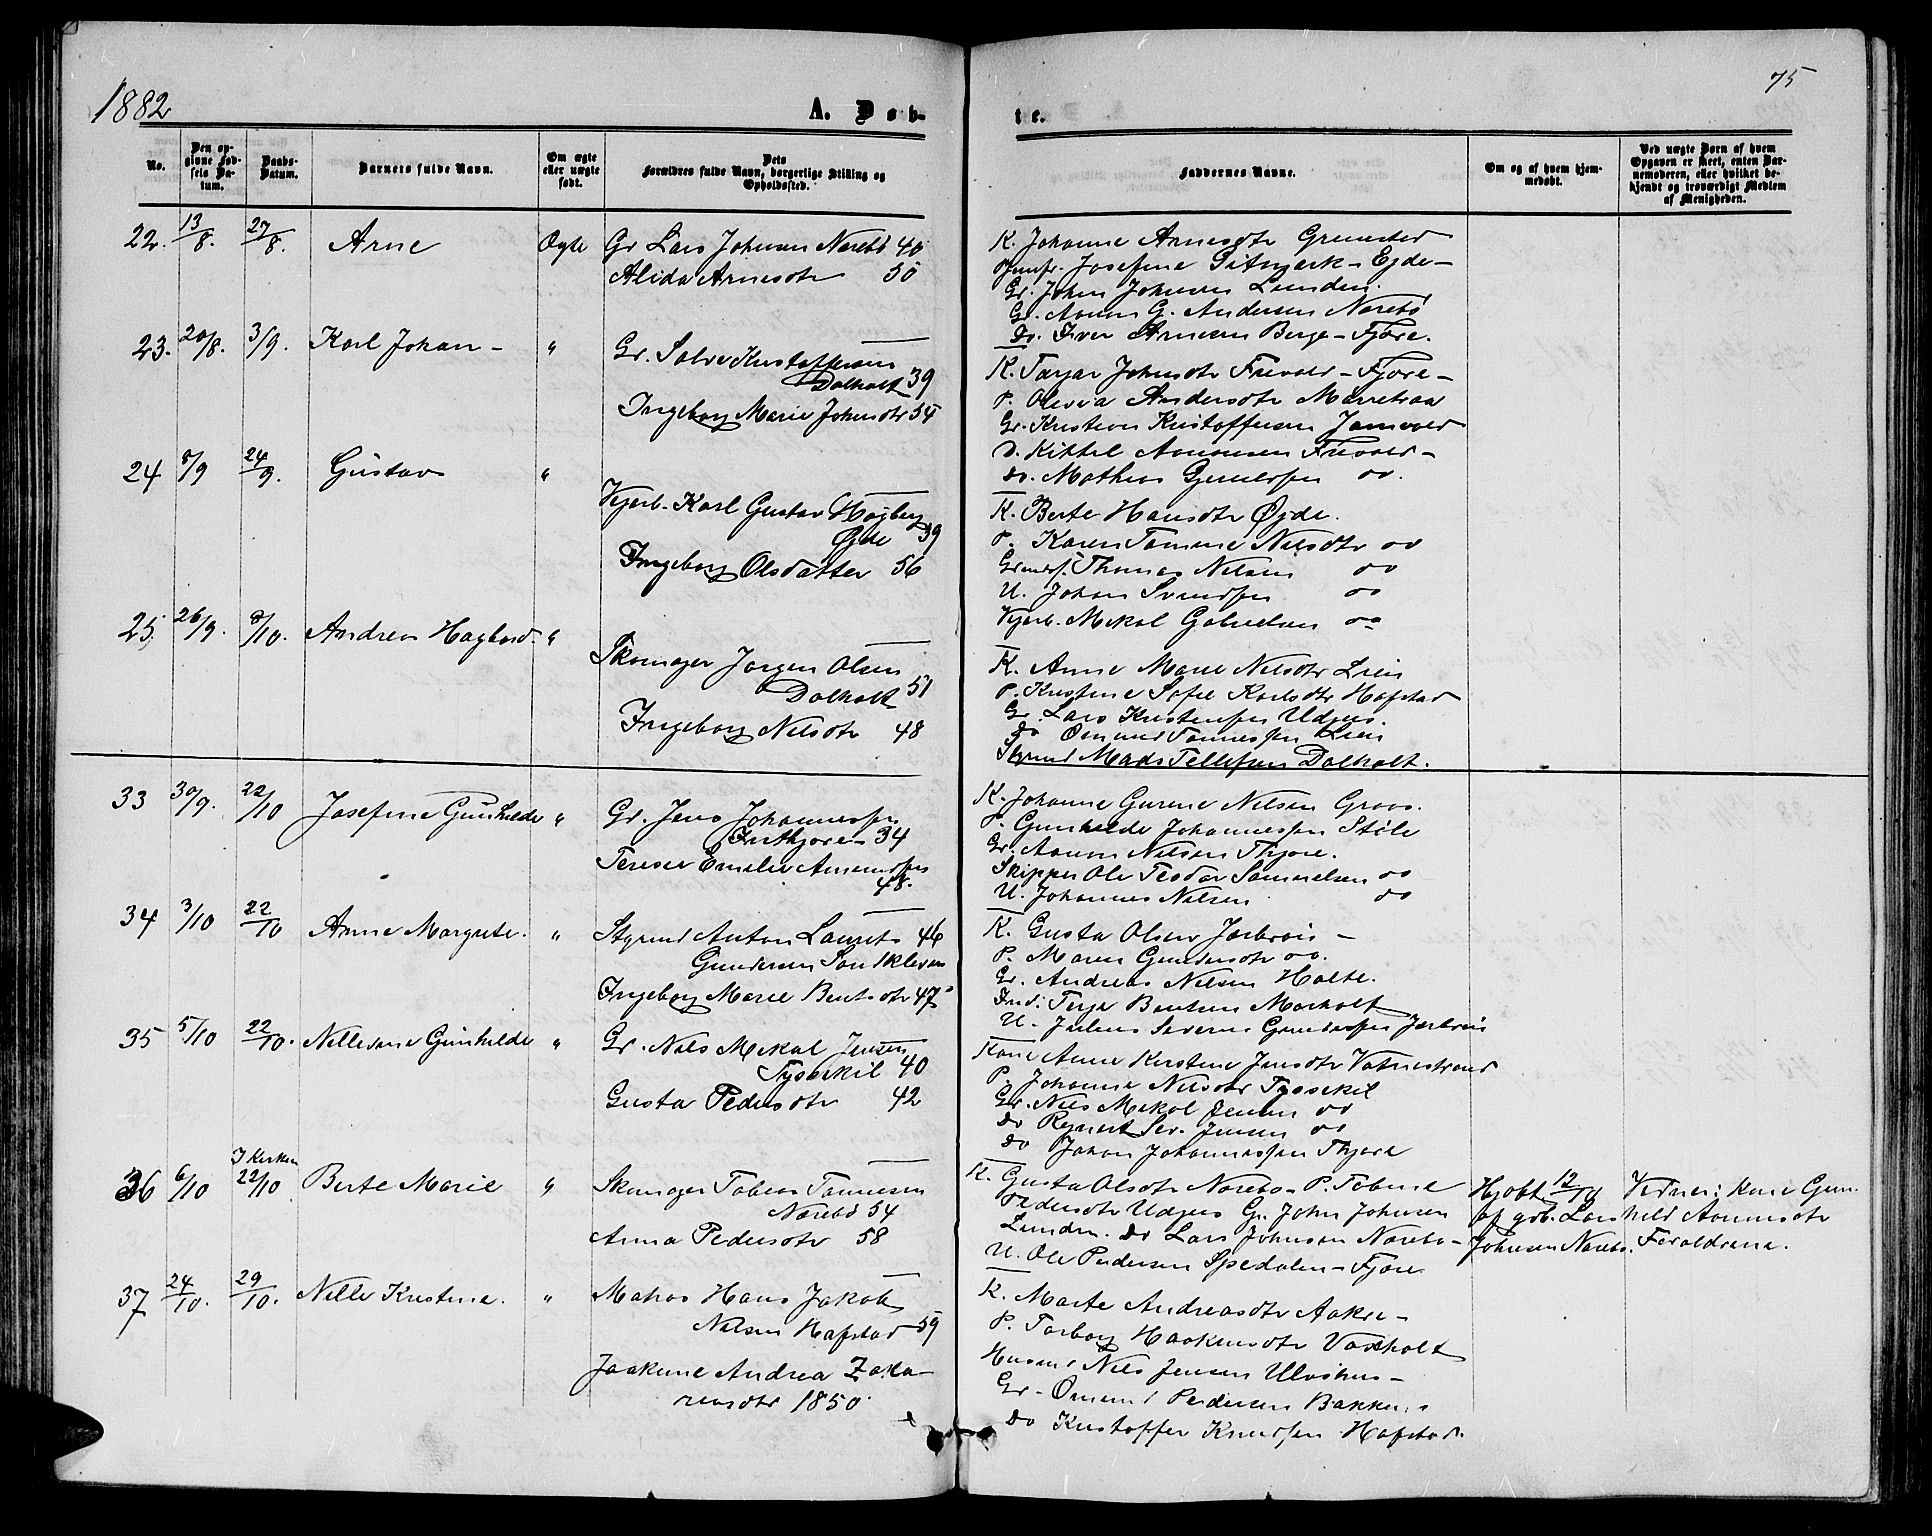 1882
75
A. Døb-
te.
No.
Den op-
givne Fød-
sels Da-
tum.
Daabs-
Datum.
Barnets fulde Navn.
Om ægte
eller uægte
født.
Dets
Forældres fulde Navn, borgerlige Stilling og
Opholdssted.
Faddernes Navne.
Om og af hvem hjem-
medøbt.
Ved uægte Børn af hvem
Opgaven er skeet, enten Bar-
nemoderen, eller hvilket be-
kjendt og troværdigt Medlem
af Menigheden.
22. 13/8. 27/8. Arne Ægte
Gr Lars Johnsen Narebö 40
Alida Arnesdtr 50
K. Johanne Arnesdtr Grimstad
Josefine Egde-
Gr. John Johnsen Lunden.
Gr. Aanon G. Andersen Narebö
do. Iver Arnesen Berge - Fjære.
23. 20/8. 3/9. Karl Johan - "
Gr. Salve Kristoffersen
Dolholt 39
Ingeborg Marie Johnsdtr 54
K. Tarjer Johnsdtr Frevold - Fjære -
P. Olevia Andersdtr Marretraa
Gr. Kristian Kristoffersen
D. Kittel Aanonsen Frevold -
do. Mathias do.
24 8/9 24/9. Gustav "
Vejarb. Karl Gustav Högberg
Øgde 39
Ingeborg Olsdatter 56
K. Berte Hansdtr Øgde.
P. Karen Tomine Nilsdtr do
Thomas Nilsen do
U. Johan Svendsen do
Vejarb. Mekal Gabrielsen do
25. 26/9. 8/10. Andreas Hagbard. "
Skomager Jørgen Olsen
Dolholt 51
Ingeborg Nilsdtr 48
K. Anne Marie Nilsdtr Lien
P. Kristine Sofie Karlsdtr Hafstad
Gr. Lars Kristensen Udgus.
do Ommund Tønnessen Lien
Styrmd Mads Tellefsen Dolholt.
33 30/9. 22/10 Josefine Gunhilde "
Gr. Jens Johannessen
Indthjore - 34
Terese Emilie Amundsen
48.
K. Johanne Gurine Nilsen Groos.
P. Gunhilde Johannessen Stöle
Gr. Aanon Nilsen Thjore.
Skipper Ole Teodor Samuelsen do
U. Johannes Nilsen do
34 3/10 22/10 Anne Margrete. "
Styrmd Anton Laurits 46
Gundersen Sandkleven
Ingeborg Marie Bentsdtr 47
K. Gusta Olsen Jortveit -
P. Maren Gundersdtr do.
Gr. Andreas Nilsen Holte.
Ind. Terje Bentsen Morholt
U. Julius Severin Gundersen Jortveit
35 5/10 22/10. Nillevine Gunhilde "
Gr. Nils Mekal Jensen
Tyssekil 40
Gusta Pedersdtr 42
Kone Anne Kirstine Jensdtr Vatnestrand
P. Johanne Nilsdtr Tyssekil
Gr. Nils Mekal Jensen do
do Reynert Sev. Jensen do
do Johan Johannessen Thjore
36 6/10 I Kirken 22/10 Berte Marie "
Skomager Tobias Tønnesen
Narebö 54
Anna Pedersdtr 58
K. Gusta Olsdtr Narebö - P. Tobine
Pedersdtr Udgus Gr. John Johnsen
Lunden. do Lars Johnsen Narebö -
U. Ole Pedersen Spedalen - Fjære
Hjdbt 12/10
af grb. Lars
Johnsen Narebö.
Vidner: Kone Gun-
hild Aanonsdtr
Forældrene.
37 24/10. 29/10. Nille Kristine. "
Matros Hans Jakob
Nilsen Hafstad 59
Joakime Andrea Zaka-
riasdtr 1850.
K. Marte Andreasdtr Aakre -
P. Torborg Haakensdtr Voxholt
Husmd Nils Jensen Ulvehus -
Gr. Omund Pedersen Bakken
do Kristoffer Knudsen Hafstad.